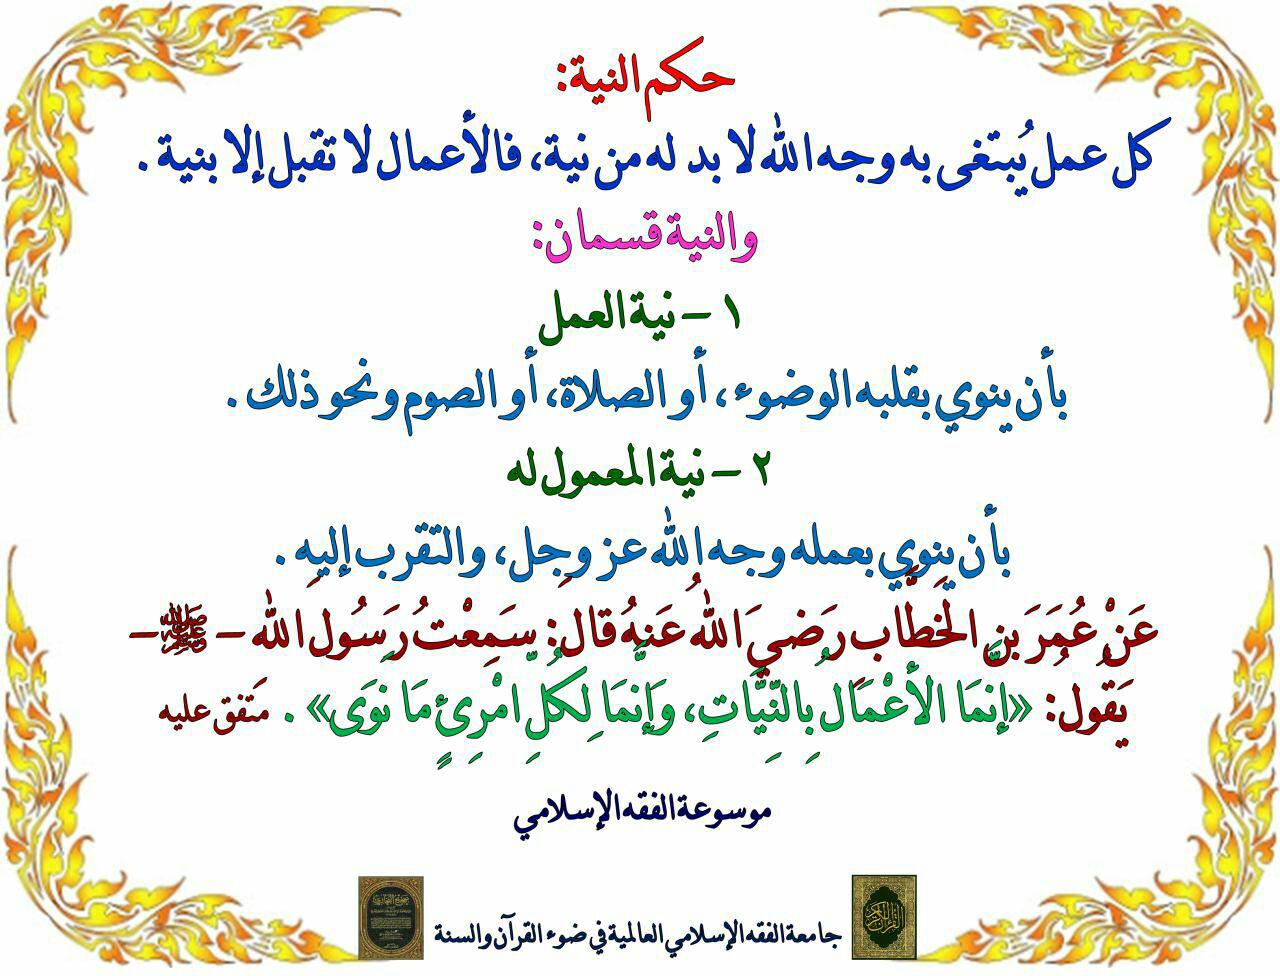 حكم النية:
كل عمل يُبتغى به وجه الله لا بد له من نية، فالأعمال لا تقبل إلا بنية .
والنية قسمان:
١ – نية العمل
بأن ينوي بقلبه الوضوء ، أو الصلاة، أو الصوم ونحو ذلك .
٢ – نية المعمول له
بأن ينوي بعمله وجه الله عز وجل، والتقرب إليه .
عَنْ عُمَرَ بنِ الْخَطَّاب رَضيَ اللهُ عَنهُ قال: سَمِعْتُ رَسُول الله – ﷺ –
يَقُولُ: «إنَّمَا الأعْمَالُ بِالنِّيَّاتِ، وَإنَّمَا لِكُلِّ امْرِئٍ مَا نَوَى» . متفق عليه
موسوعة الفقه الإسلامي
القرآن الكريم
جامعة الفقه الإسلامي العالمية في ضوء القرآن والسنة
صحيح البخاري